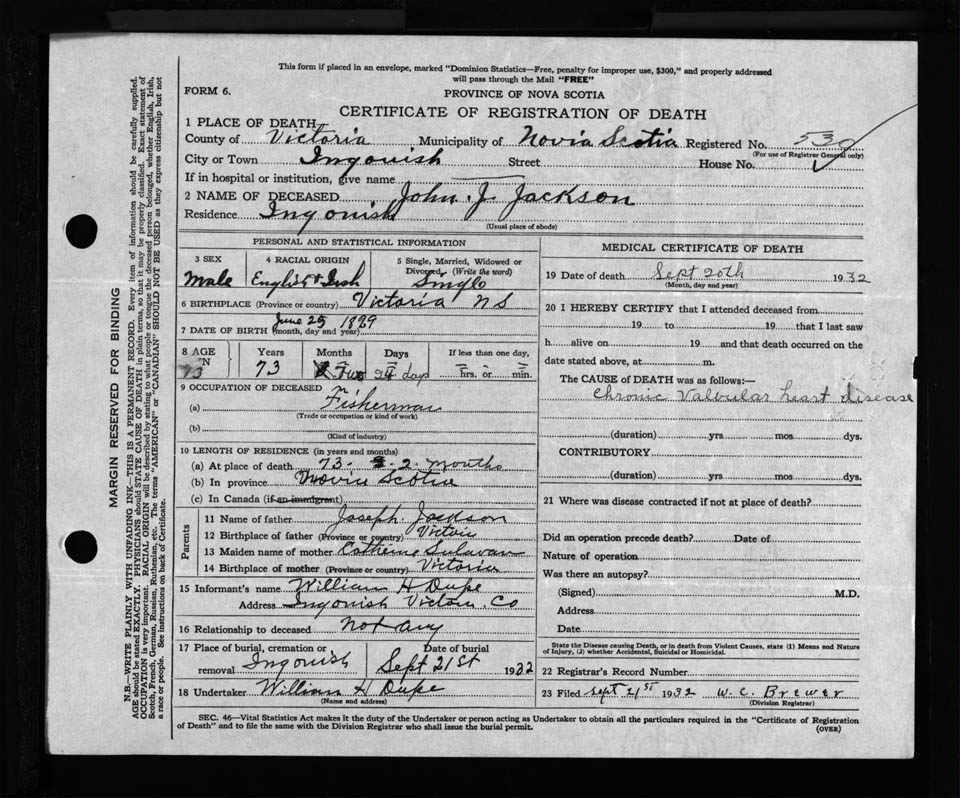 This form if placed in an envelope, marked "Dominion Statistics—Free, penalty for improper use, $300," and properly addressed
will pass through the Mail "FREE"
FORM 6.
PROVINCE OF NOVA SCOTIA
CERTIFICATE OF REGISTRATION OF DEATH
1 PLACE OF DEATH
County of Victoria Municipality of Novia Scotia Registered No.
(For use of Registrar General only)
City or Town Ingonish Street House No.
If in hospital or institution, give name
2 NAME OF DECEASED John. J. Jackson
Residence Ingonish
(Usual place of abode)
PERSONAL AND STATISTICAL INFORMATION
3 SEX 4 RACIAL ORIGIN 5 Single, Married, Widowed or
Divorced, (Write the word)
Male English + Irish Single
6 BIRTHPLACE (Province or country) Victoria N S
7 DATE OF BIRTH (month, day and year) June 25
8 AGE Years Months Days If less than one day,
73 73 Two days hrs. or min.
9 OCCUPATION OF DECEASED
(a) Fisherman
(Trade or occupation or kind of work)
(b)
(Kind of industry)
10 LENGTH OF RESIDENCE (in years and months)
(a) At place of death 73. 2. months
(b) In province Novia Scotia
(c) In Canada (if an immigrant)
Parents
11 Name of father Joseph. Jackson
12 Birthplace of father (Province or country)
13 Maiden name of mother Catherine
14 Birthplace of mother (Province or country) Victoria
15 Informant's name William H Dupe
Address Ingonish Co
16 Relationship to deceased Not any
17 Place of burial, cremation or Date of burial
removal Ingonish Sept 21st 1932
18 Undertaker William H Dupe
(Name and address)
MEDICAL CERTIFICATE OF DEATH
19 Date of death Sept 20th 1932
(Month, day and year)
20 I HEREBY CERTIFY that I attended deceased from
19 to 19 that I last saw
h alive on 19 and that death occurred on the
date stated above, at m.
The CAUSE of DEATH was as follows:—
Chronic Valvular heart disease
(duration) yrs. mos. dys.
CONTRIBUTORY
(duration) yrs. mos. dys.
21 Where was disease contracted if not at place of death?
Did an operation precede death? Date of
Nature of operation
Was there an autopsy?
(Signed) M.D.
Address
Date
State the Disease causing Death, or in death from Violent Causes, state (1) Means and
Nature of Injury, (2) whether Accidental, Suicidal or Homicidal.
22 Registrar's Record Number
23 Filed Sept 21st 1932 W. C. Brewer
(Division Registrar)
SEC. 46—Vital Statistics Act makes it the duty of the Undertaker or person acting as Undertaker to obtain all the particulars required in the "Certificate of Registration
of Death" and to file the same with the Division Registrar who shall issue the burial permit.
(OVER)
MARGIN RESERVED FOR BINDING
N.B.—WRITE PLAINLY WITH UNFADING INK—THIS IS A PERMANENT RECORD. Every item of information should be carefully supplied.
AGE should be stated EXACTLY. PHYSICIANS should STATE CAUSE OF DEATH in plain terms, so that it may be properly classified. Exact statement of
OCCUPATION is very important. RACIAL ORIGIN will be described by stating to what people or tongue the deceased person belonged, whether English, Irish,
Scotch, French, German, Russian, Ruthenian, etc. The terms "AMERICAN" or "CANADIAN" SHOULD NOT BE USED as they express citizenship but not
a race or people. See instructions on back of Certificate.